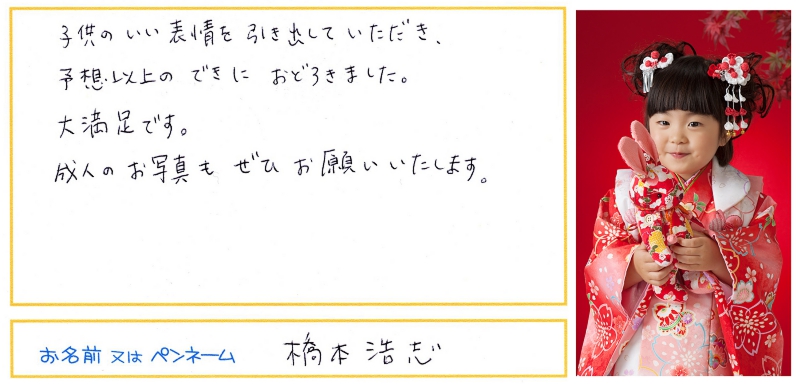 子供のいい表情を引き出していただき、
予想以上のできにおどろきました。
大満足です。
成人のお写真もぜひお願いいたします。
お名前 又は ペンネーム 橋本浩志